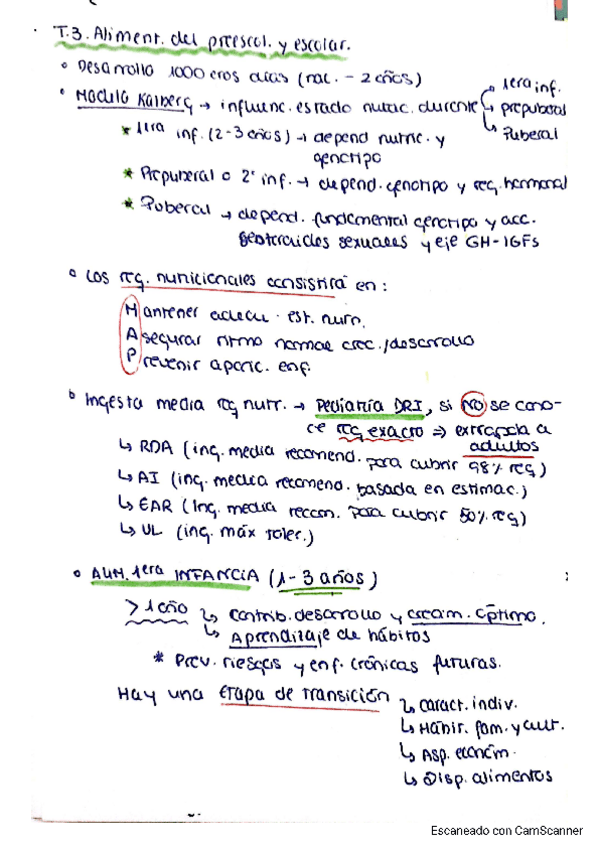 T.3. Aliment. del preescol. y escolar.
° Desarrollo 1000 eros días (nac. - 2 años)
° Modelo Kalberg → influenc. estado nutric. durante → 1era inf.
→ prepuberal
→ Puberal
* 1era inf. (2-3 años) → depend nutric. y
genotipo
* Prepuberal o 2ª inf. → depend. genotipo y reg. hormonal
* Puberal → depend. fundamental genotipo y acc.
esteroides sexuales y eje GH-IGFs
° Los rq. nutricionales consistirá en:
Mantener adecu. est. nutri.
Asegurar ritmo normal crec./desarrollo
Prevenir aparic. enf.
° Ingesta media rq nutr. → Pediatría DRI, si NO se cono-
ce rq exacto ⇒ extrapola a
adultos
↳ RDA (ing. media recomend. para cubrir 98% rq)
↳ AI (ing. media recomend. basada en estimac.)
↳ EAR (Ing. media recom. para cubrir 50% rq)
↳ UL (ing. máx toler.)
° ALIM. 1era INFANCIA (1-3 años)
> 1 año ↳ contrib. desarrollo y crecim. óptimo.
↳ Aprendizaje de hábitos
* Prev. riesgos y enf. crónicas futuras.
Hay una etapa de transición ↳ caract. indiv.
↳ Hábit. fam. y cult.
↳ Asp. económ.
↳ Disp. alimentos
Escaneado con CamScanner